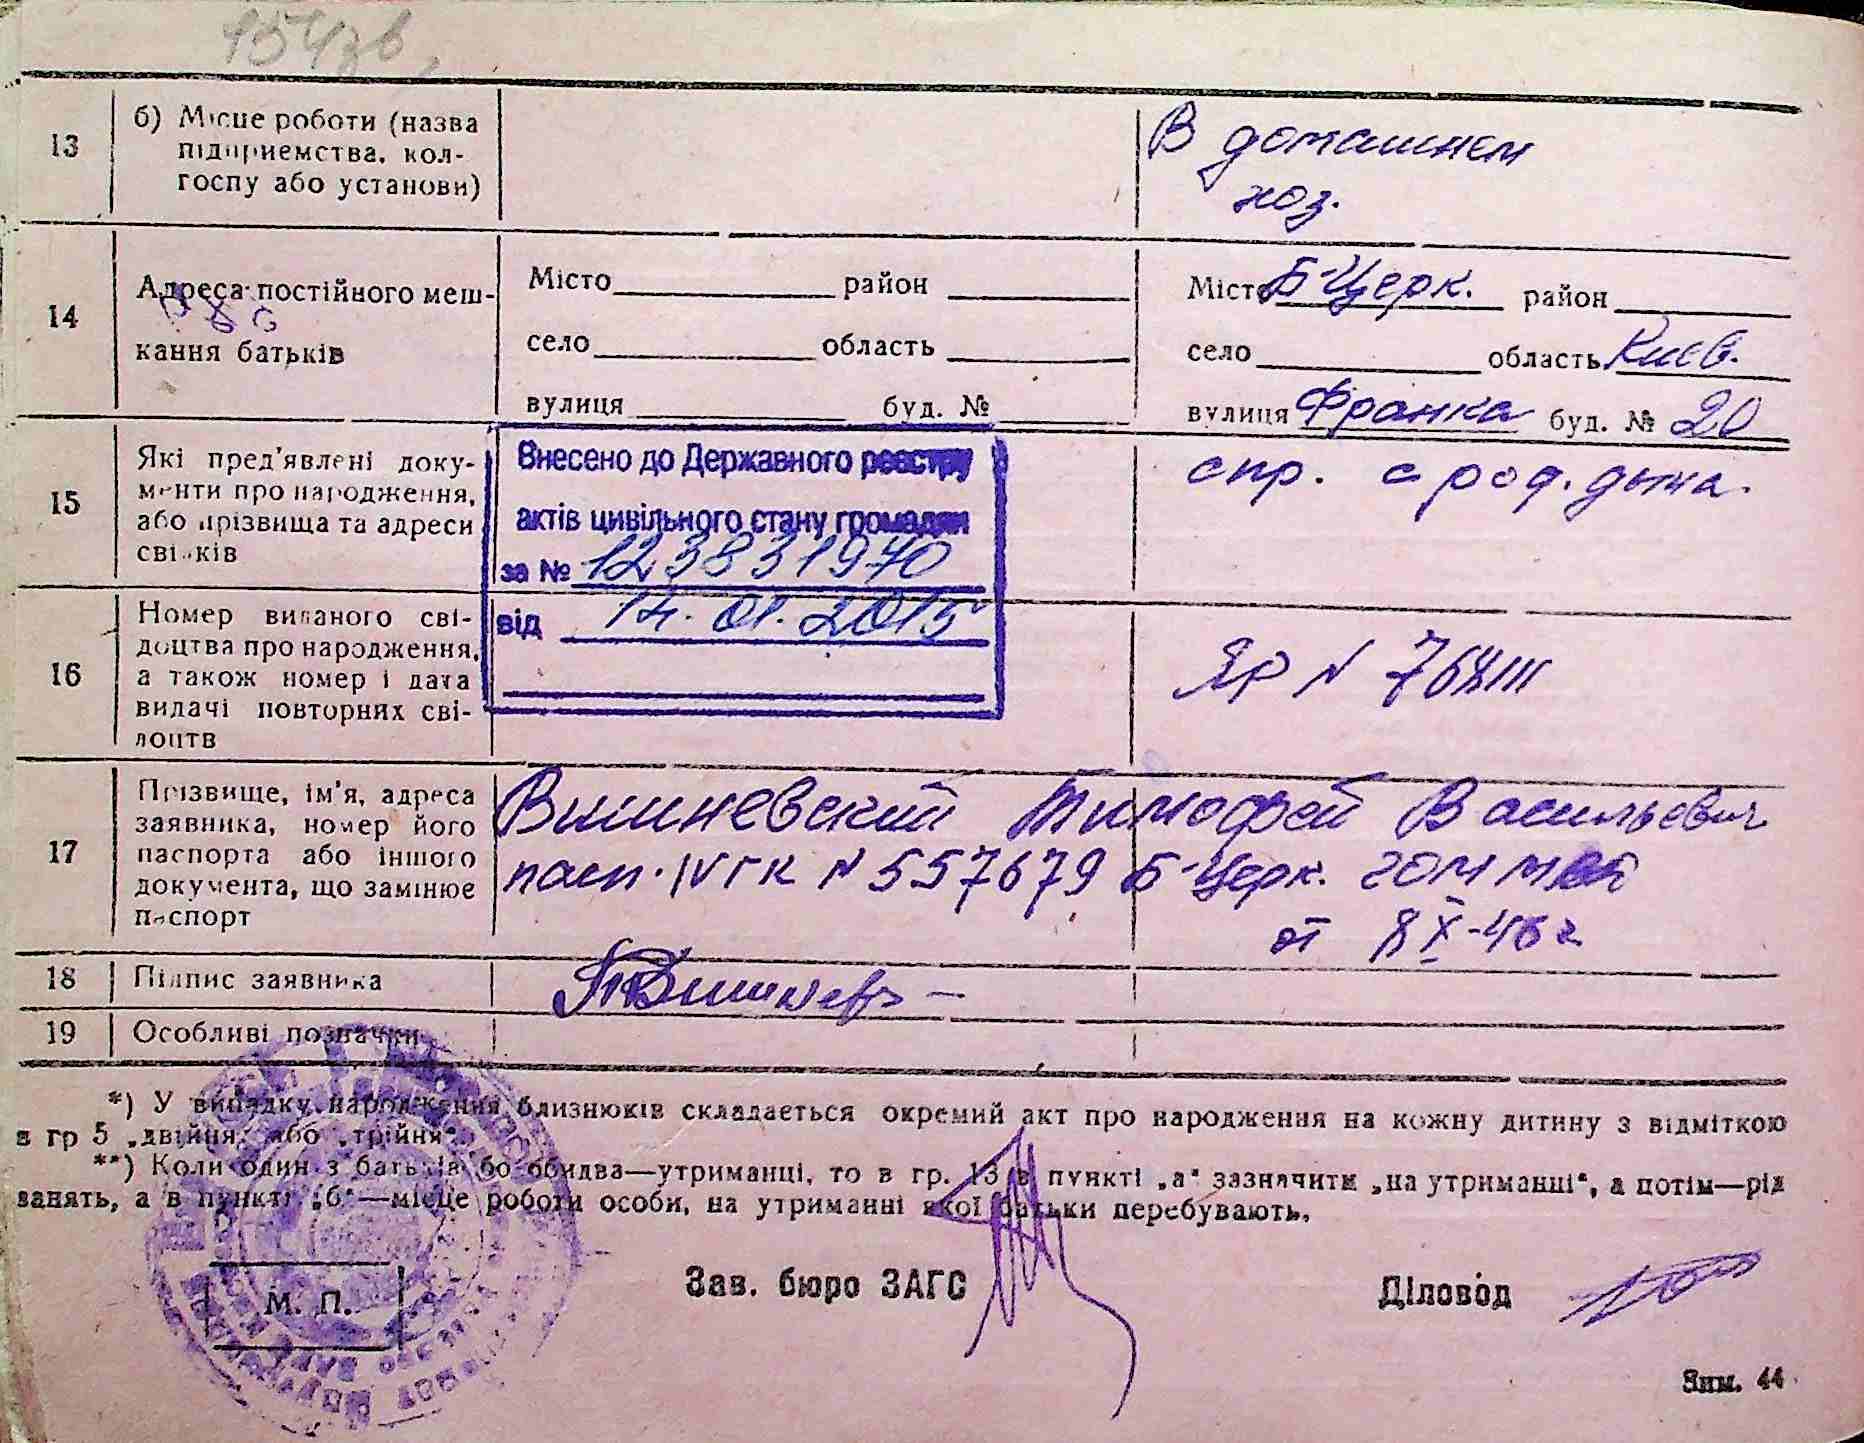 154зв
13
б) Місце роботи (назва
підприемства, кол-
госпу або установи)
В домашнем
хоз.
14
Адреса постійного меш-
кання батьків
Місто район
село область
вулиця буд. №
Місто Б-Церк. район
село область Киев.
вулиця Франка буд. № 20
15
Які пред'явлені доку-
менти про народження,
або прізвища та адреси
свідків
спр. с род. дома.
Внесено до Державного реєстру
актів цивільного стану громадян
за № 123831970
від 14.01.2015
16
Номер виданого сві-
доцтва про народження,
а також номер і дата
видачі повторних сві-
доцтв
ЯР N
17
Прізвище, ім'я, адреса
заявника, номер його
паспорта або іншого
документа, що замінює
паспорт
Вишневский Тимофей Васильевич
пасп. IV ГК N 557679 Б-Церк. ГОМ
от 8 X-46 г
18
Підпис заявника
19
Особливі позначки
*) У випадку народження близнюків складається окремий акт про народження на кожну дитину з відміткою
в гр 5 „двійня" або „трійня".
**) Коли один з батьків або обидва—утриманці, то в гр. 13 в пункті „а" зазначити „на утриманні", а потім—рід
занять, а в пункті „б"—місце роботи особи, на утриманні якої батьки перебувають.
М. П.
Зав. бюро ЗАГС
Діловод
Зим. 44